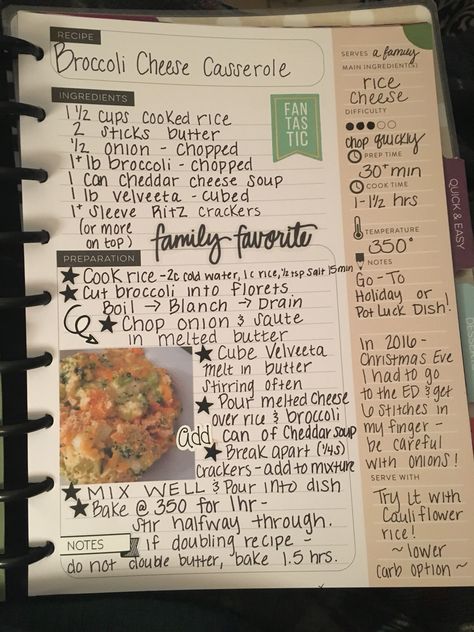 RECIPE
Broccoli Cheese Casserole
INGREDIENTS
1 1/2 cups cooked rice
2 sticks butter
1/2 onion - chopped
1+ lb broccoli - chopped
1 can cheddar cheese soup
1 lb velveeta - cubed
1+ sleeve Ritz crackers
(or more
on top)
FAN
TAS
TIC
family favorite
PREPARATION
★ Cook rice - 2c cold water, 1c rice, 1/2 tsp salt 15min
★ Cut broccoli into florets
Boil → Blanch → Drain
★ Chop onion & saute
in melted butter
★ Cube Velveeta
melt in butter
stirring often
★ Pour melted cheese
over rice & broccoli
add can of Cheddar soup
★ Break apart (1/4s)
crackers - add to mixture
★ MIX WELL & Pour into dish
★ Bake @ 350 for 1hr -
stir halfway through.
NOTES
if doubling recipe -
do not double butter, bake 1.5 hrs.
SERVES a family
MAIN INGREDIENT(S)
rice
cheese
DIFFICULTY
chop quickly
PREP TIME
30+ min
COOK TIME
1-1 1/2 hrs
TEMPERATURE
350°
NOTES
Go-To
Holiday or
Pot Luck Dish!
In 2016 -
Christmas Eve
I had to go
to the ED & get
6 stitches in
my finger -
be careful
with onions!
SERVE WITH
Try it with
Cauliflower
rice!
~ lower
carb option ~
QUICK & EASY